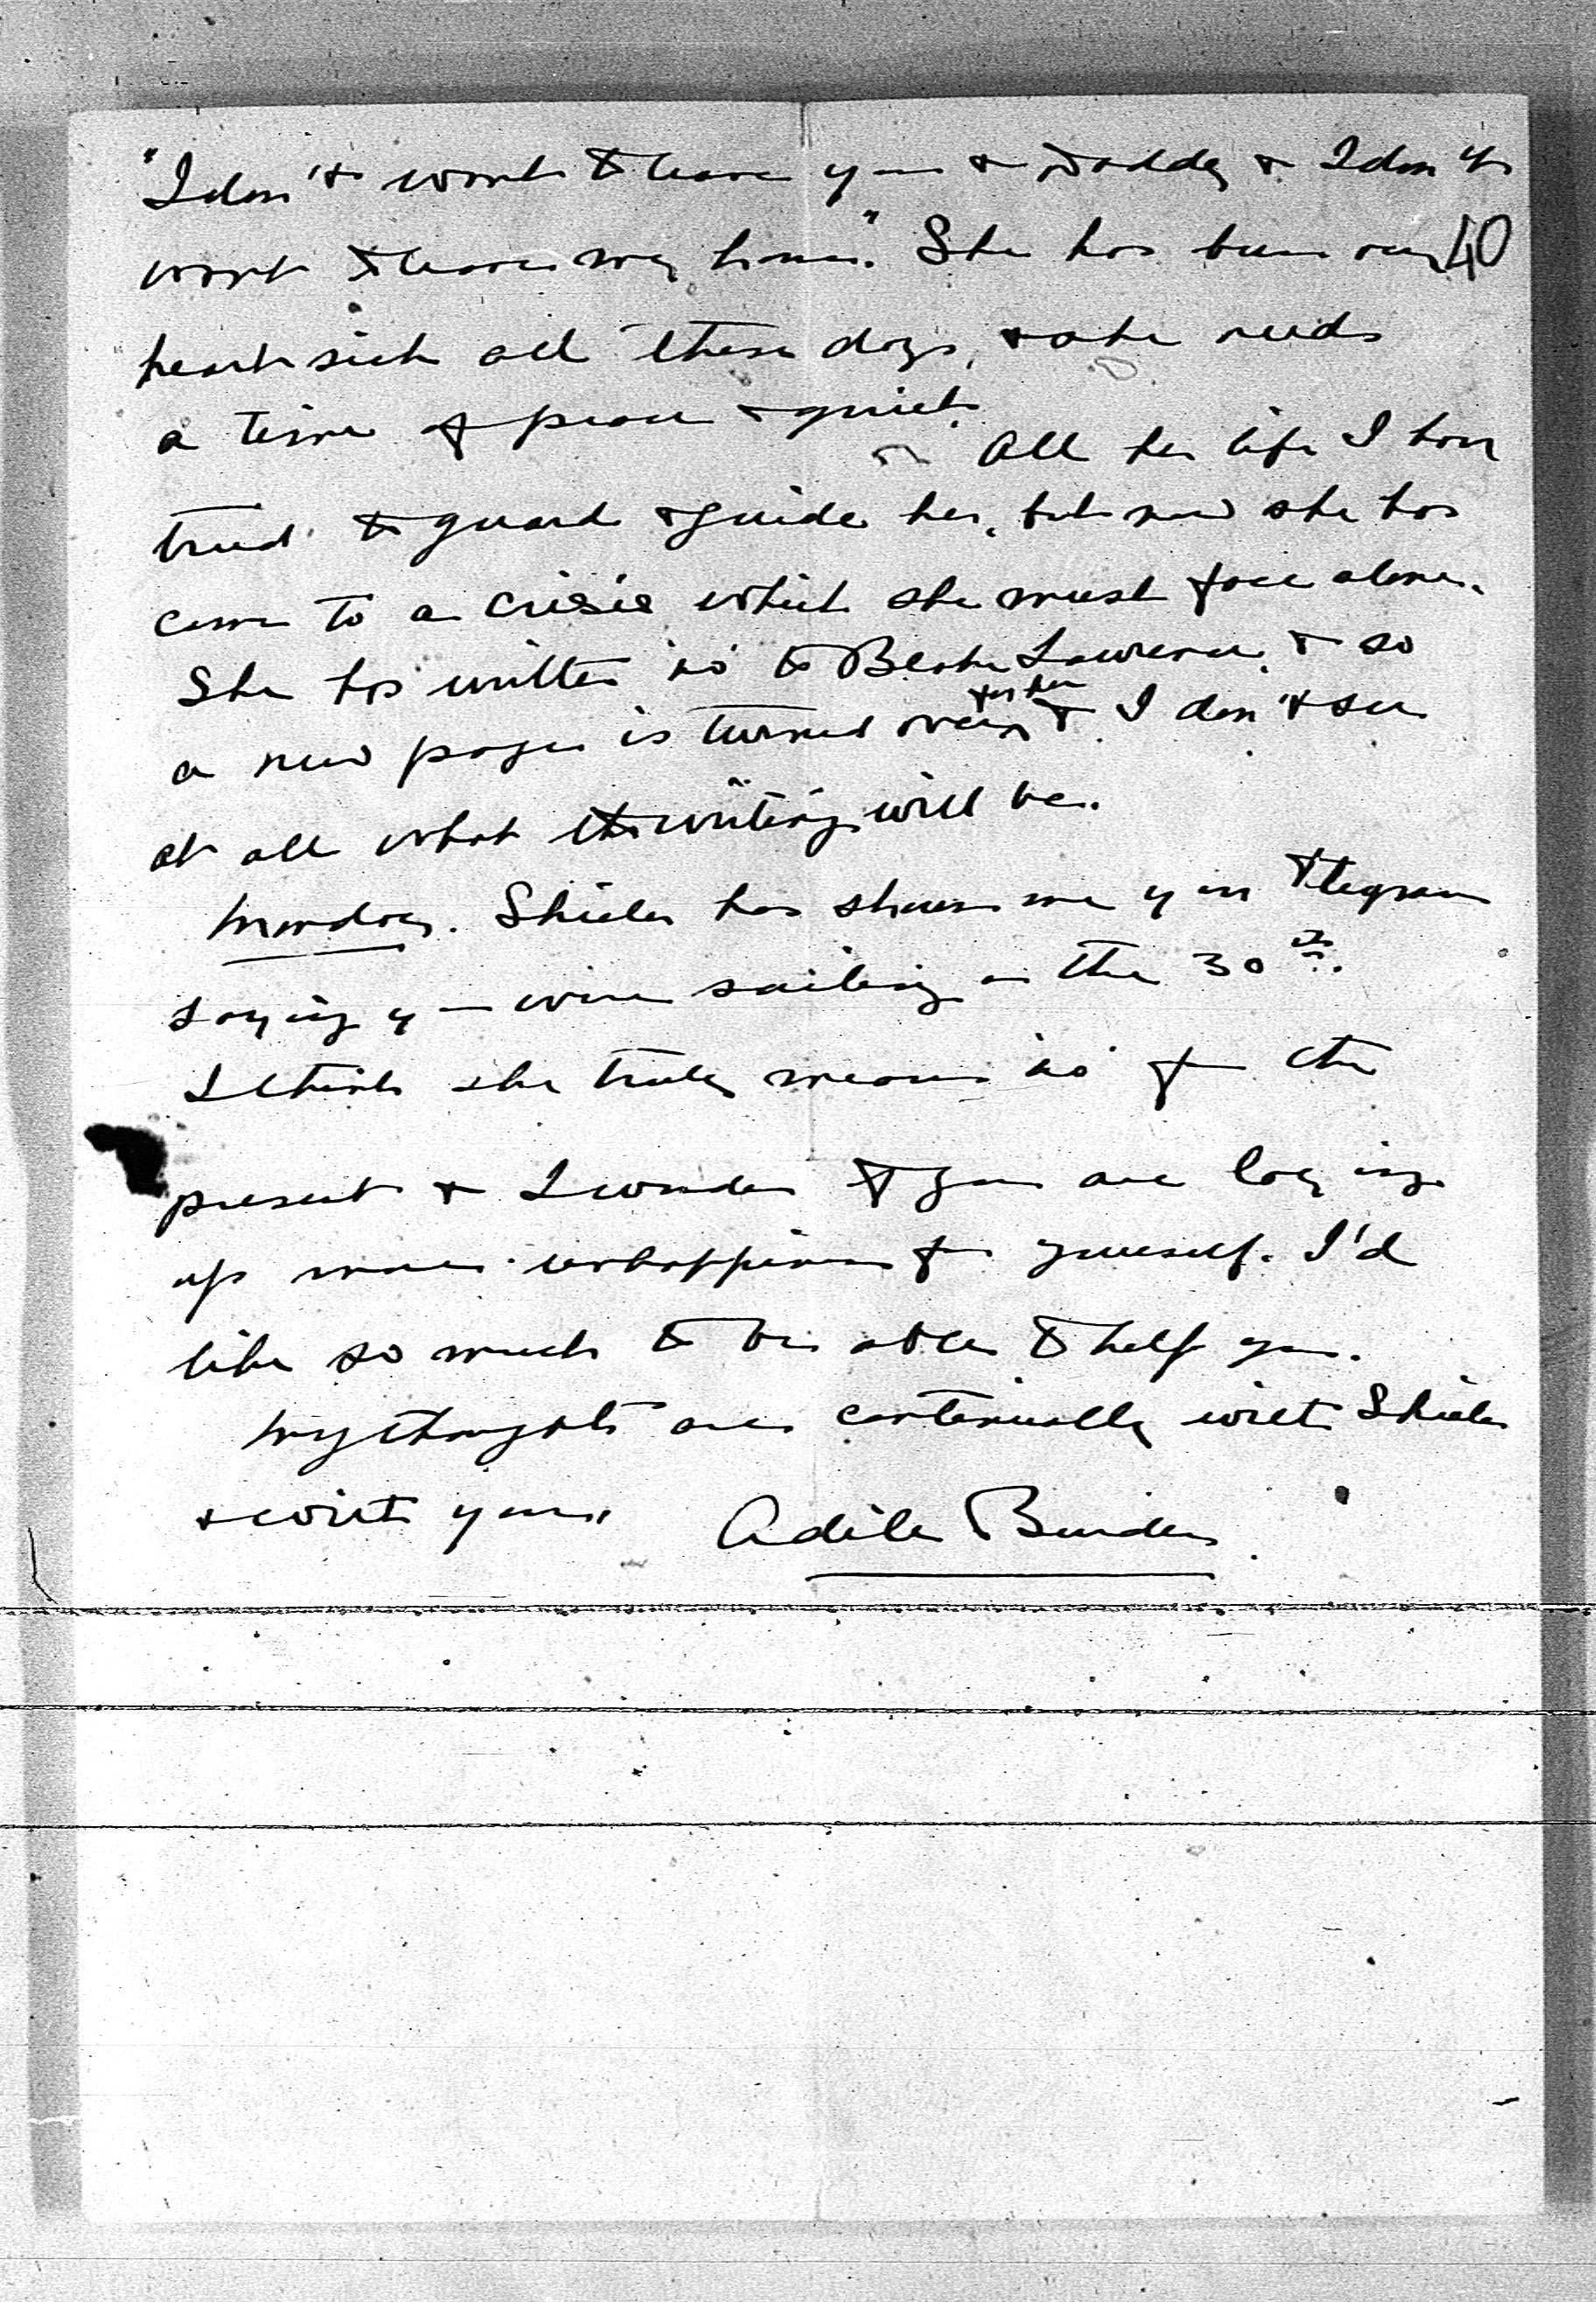 "I don't want to leave you & Daddy & I don't
want to leave my home." She has been very 40
heart sick all these days, & she needs
a time of peace & quiet.
All her life I have
tried to guard & guide her, but now she has
come to a crisis which she must face alone.
She has written 'no' to Blake Lawrence, & so
a new page is turned over for her & I don't see
at all what the writing will be.
Monday. Shiela has shown me your telegram
saying you were sailing on the 30th.
I think she truly means 'no' for the
present & I wonder if you are laying
up more unhappiness for yourself. I'd
like so much to be able to help you.
My thoughts are continually with Shiela
& with you. Adèle Burden.